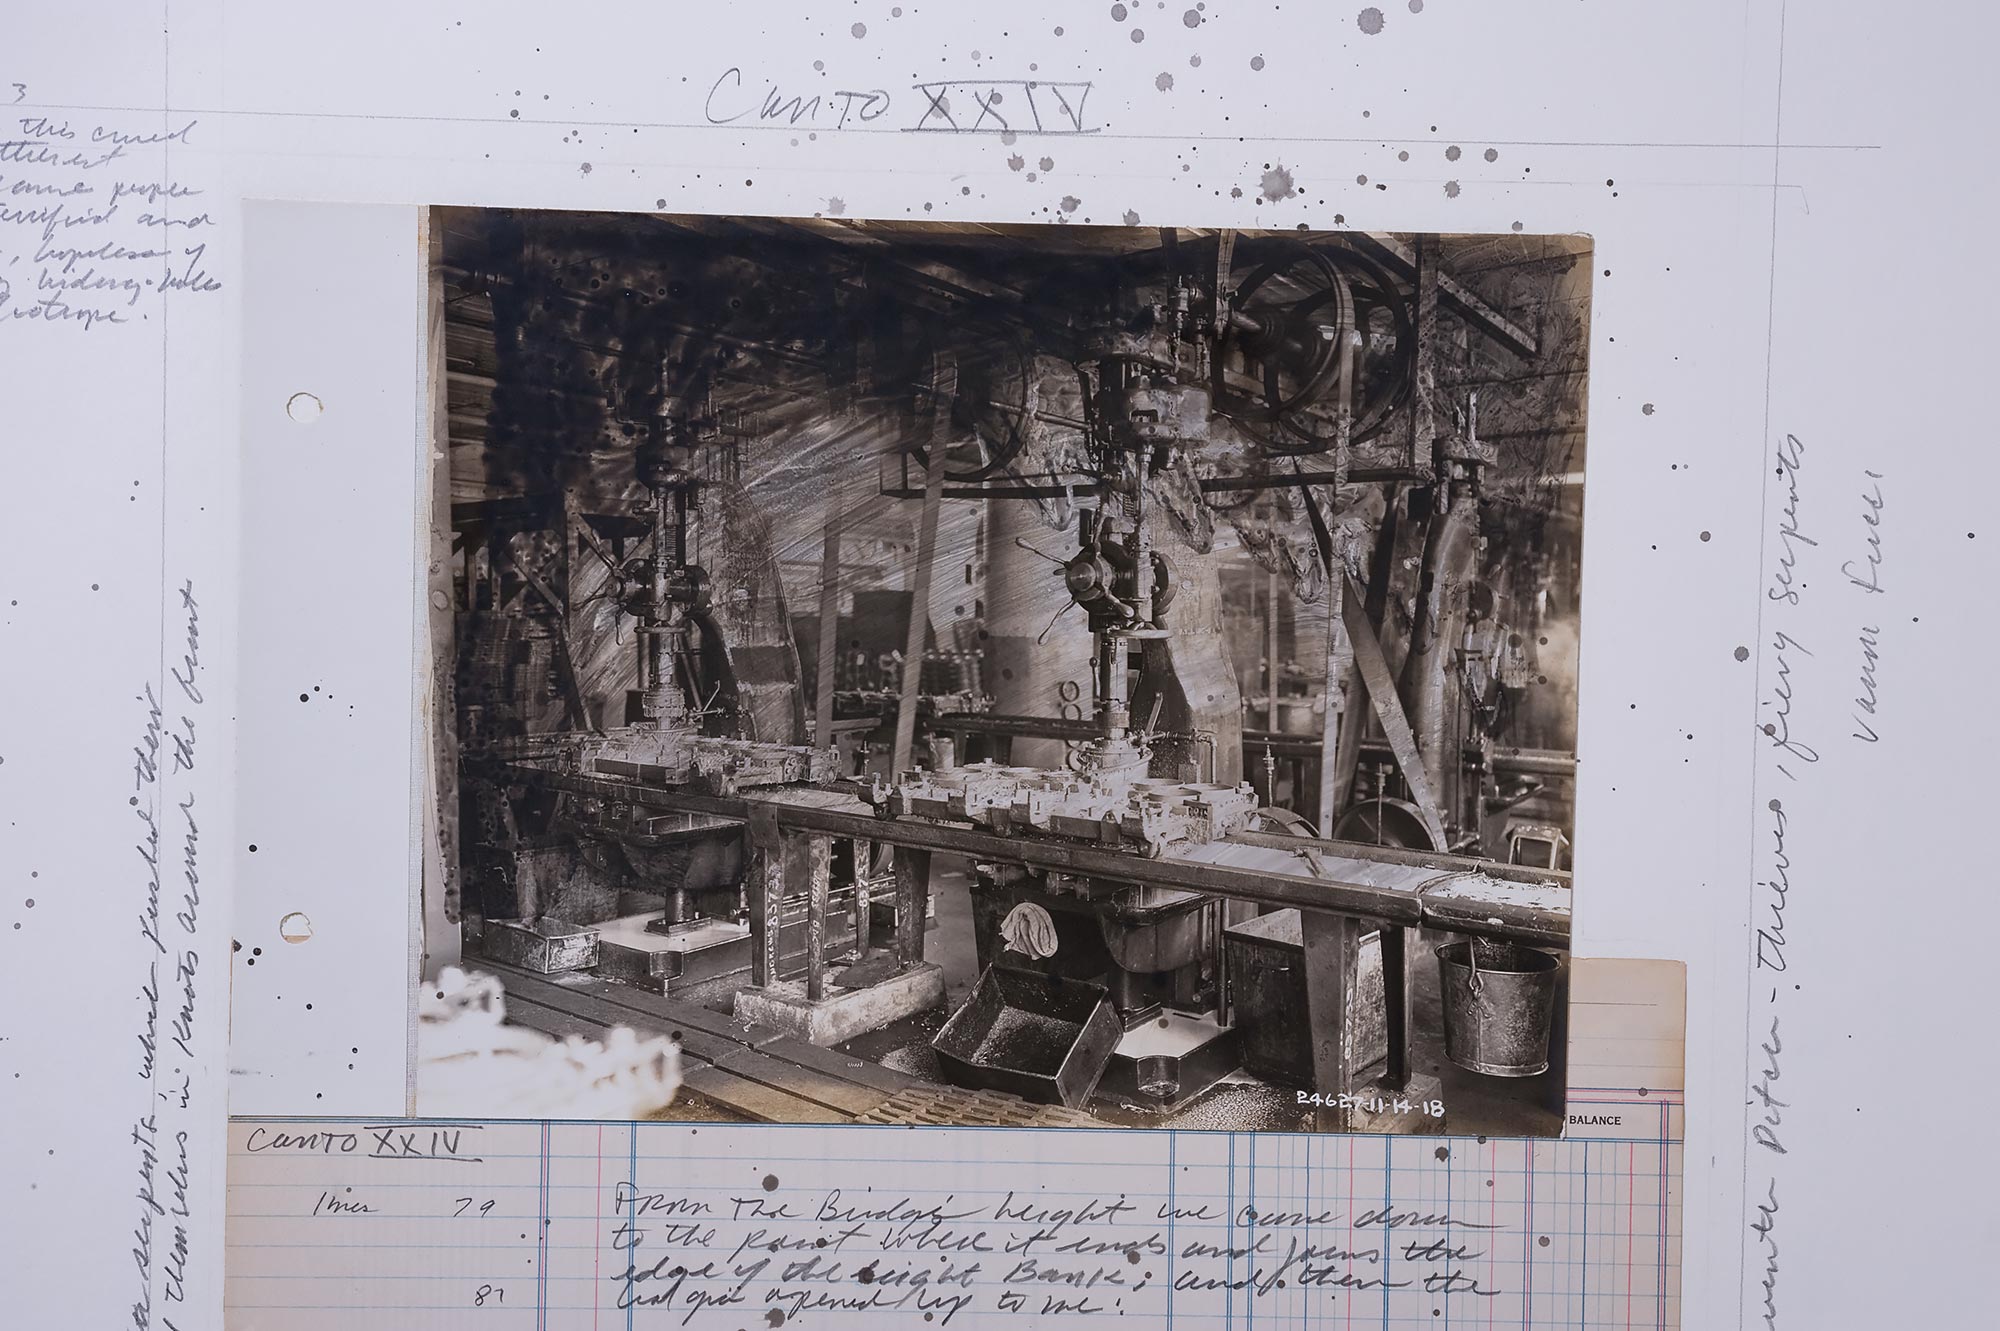 Canto XXIV
3
this cruel
people
terrified and
, hopeless of
hiding-holes
serpents, which pierced their
themselves in knots around the front
24627-11-14-18
BALANCE
Canto XXIV
lines 79
From the Bridge's height we came down
to the point where it ends and joins the
edge of the eight Bank; and then the
81
opened up to me:
Ditch - Thieves, fiery serpents
Vanni Fucci